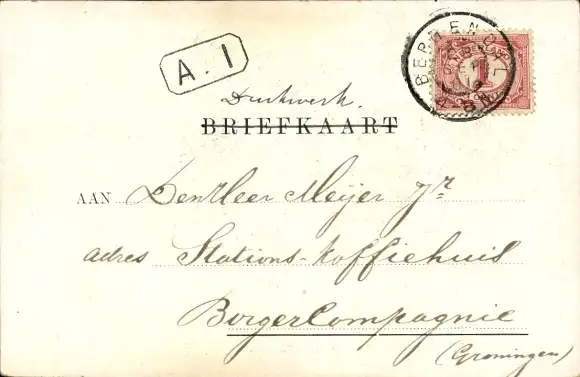 A. I
Drukwerk.
BRIEFKAART
AAN Den Heer Meijer Jr
adres Stations-Koffiehuis
BorgerCompagnie
(Groningen)
1